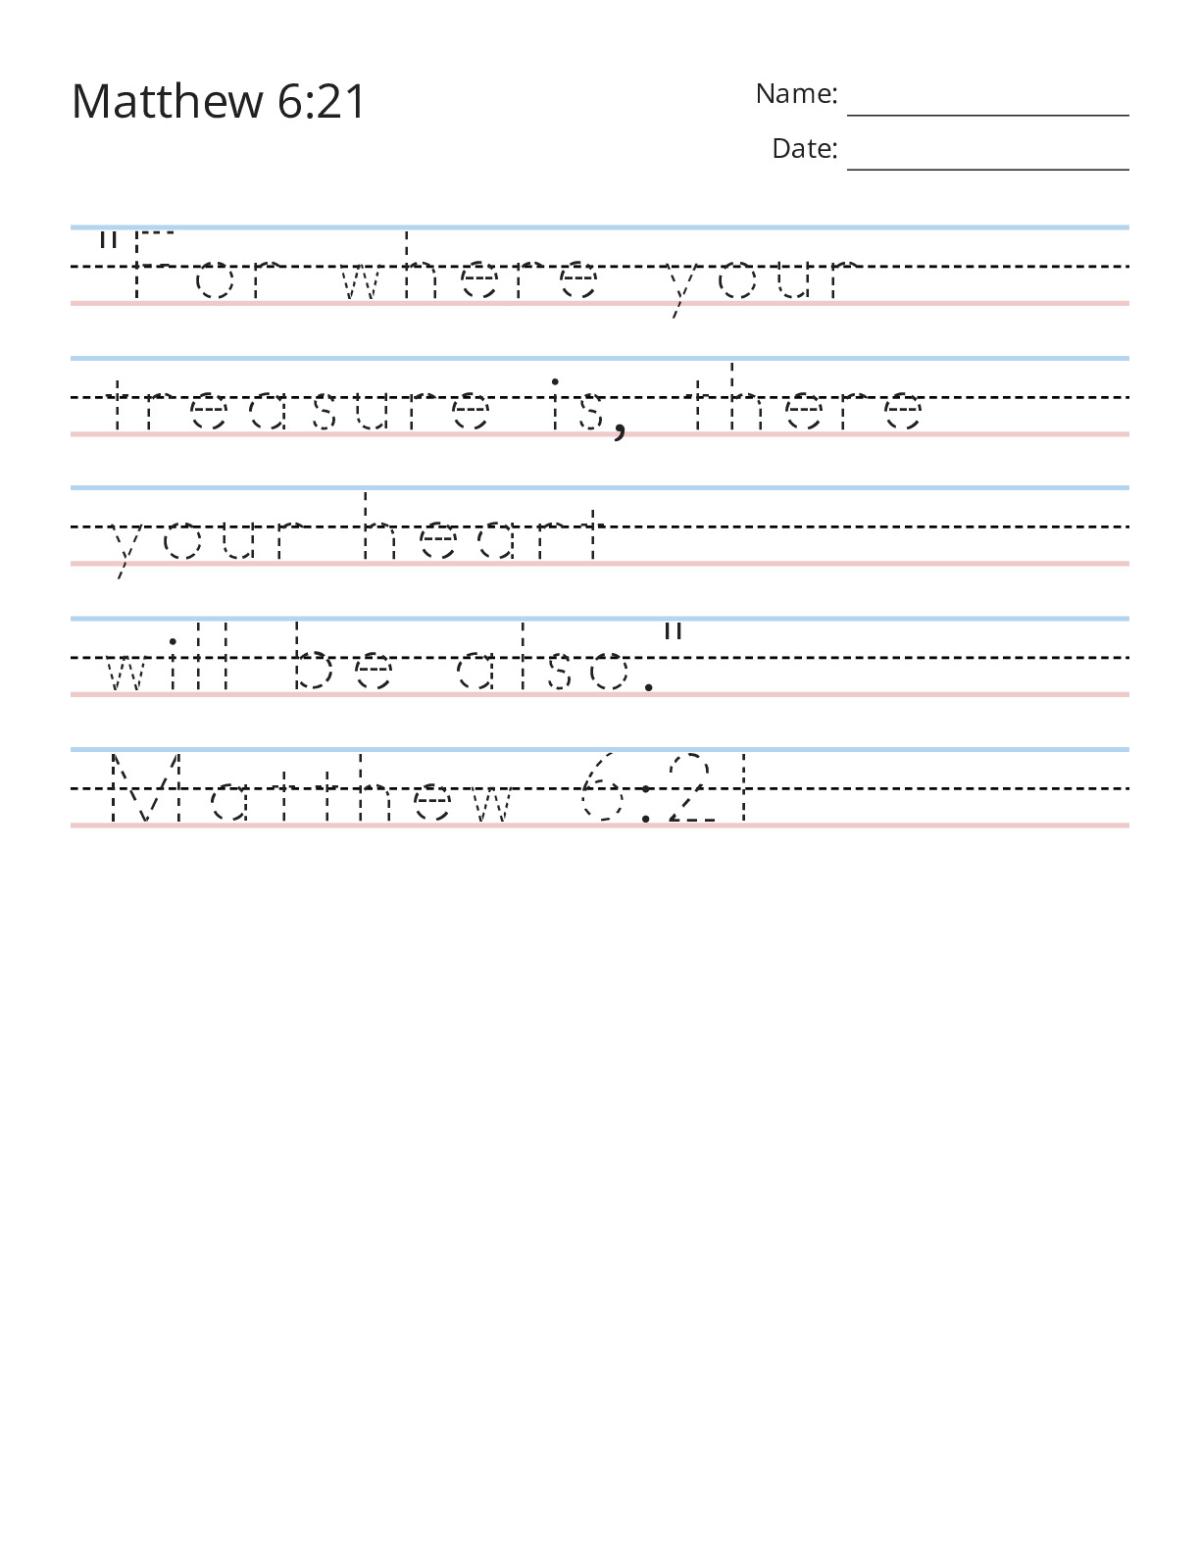 Matthew 6:21
Name:
Date:
"For where your
treasure is, there
your heart
will be also."
Matthew 6:21